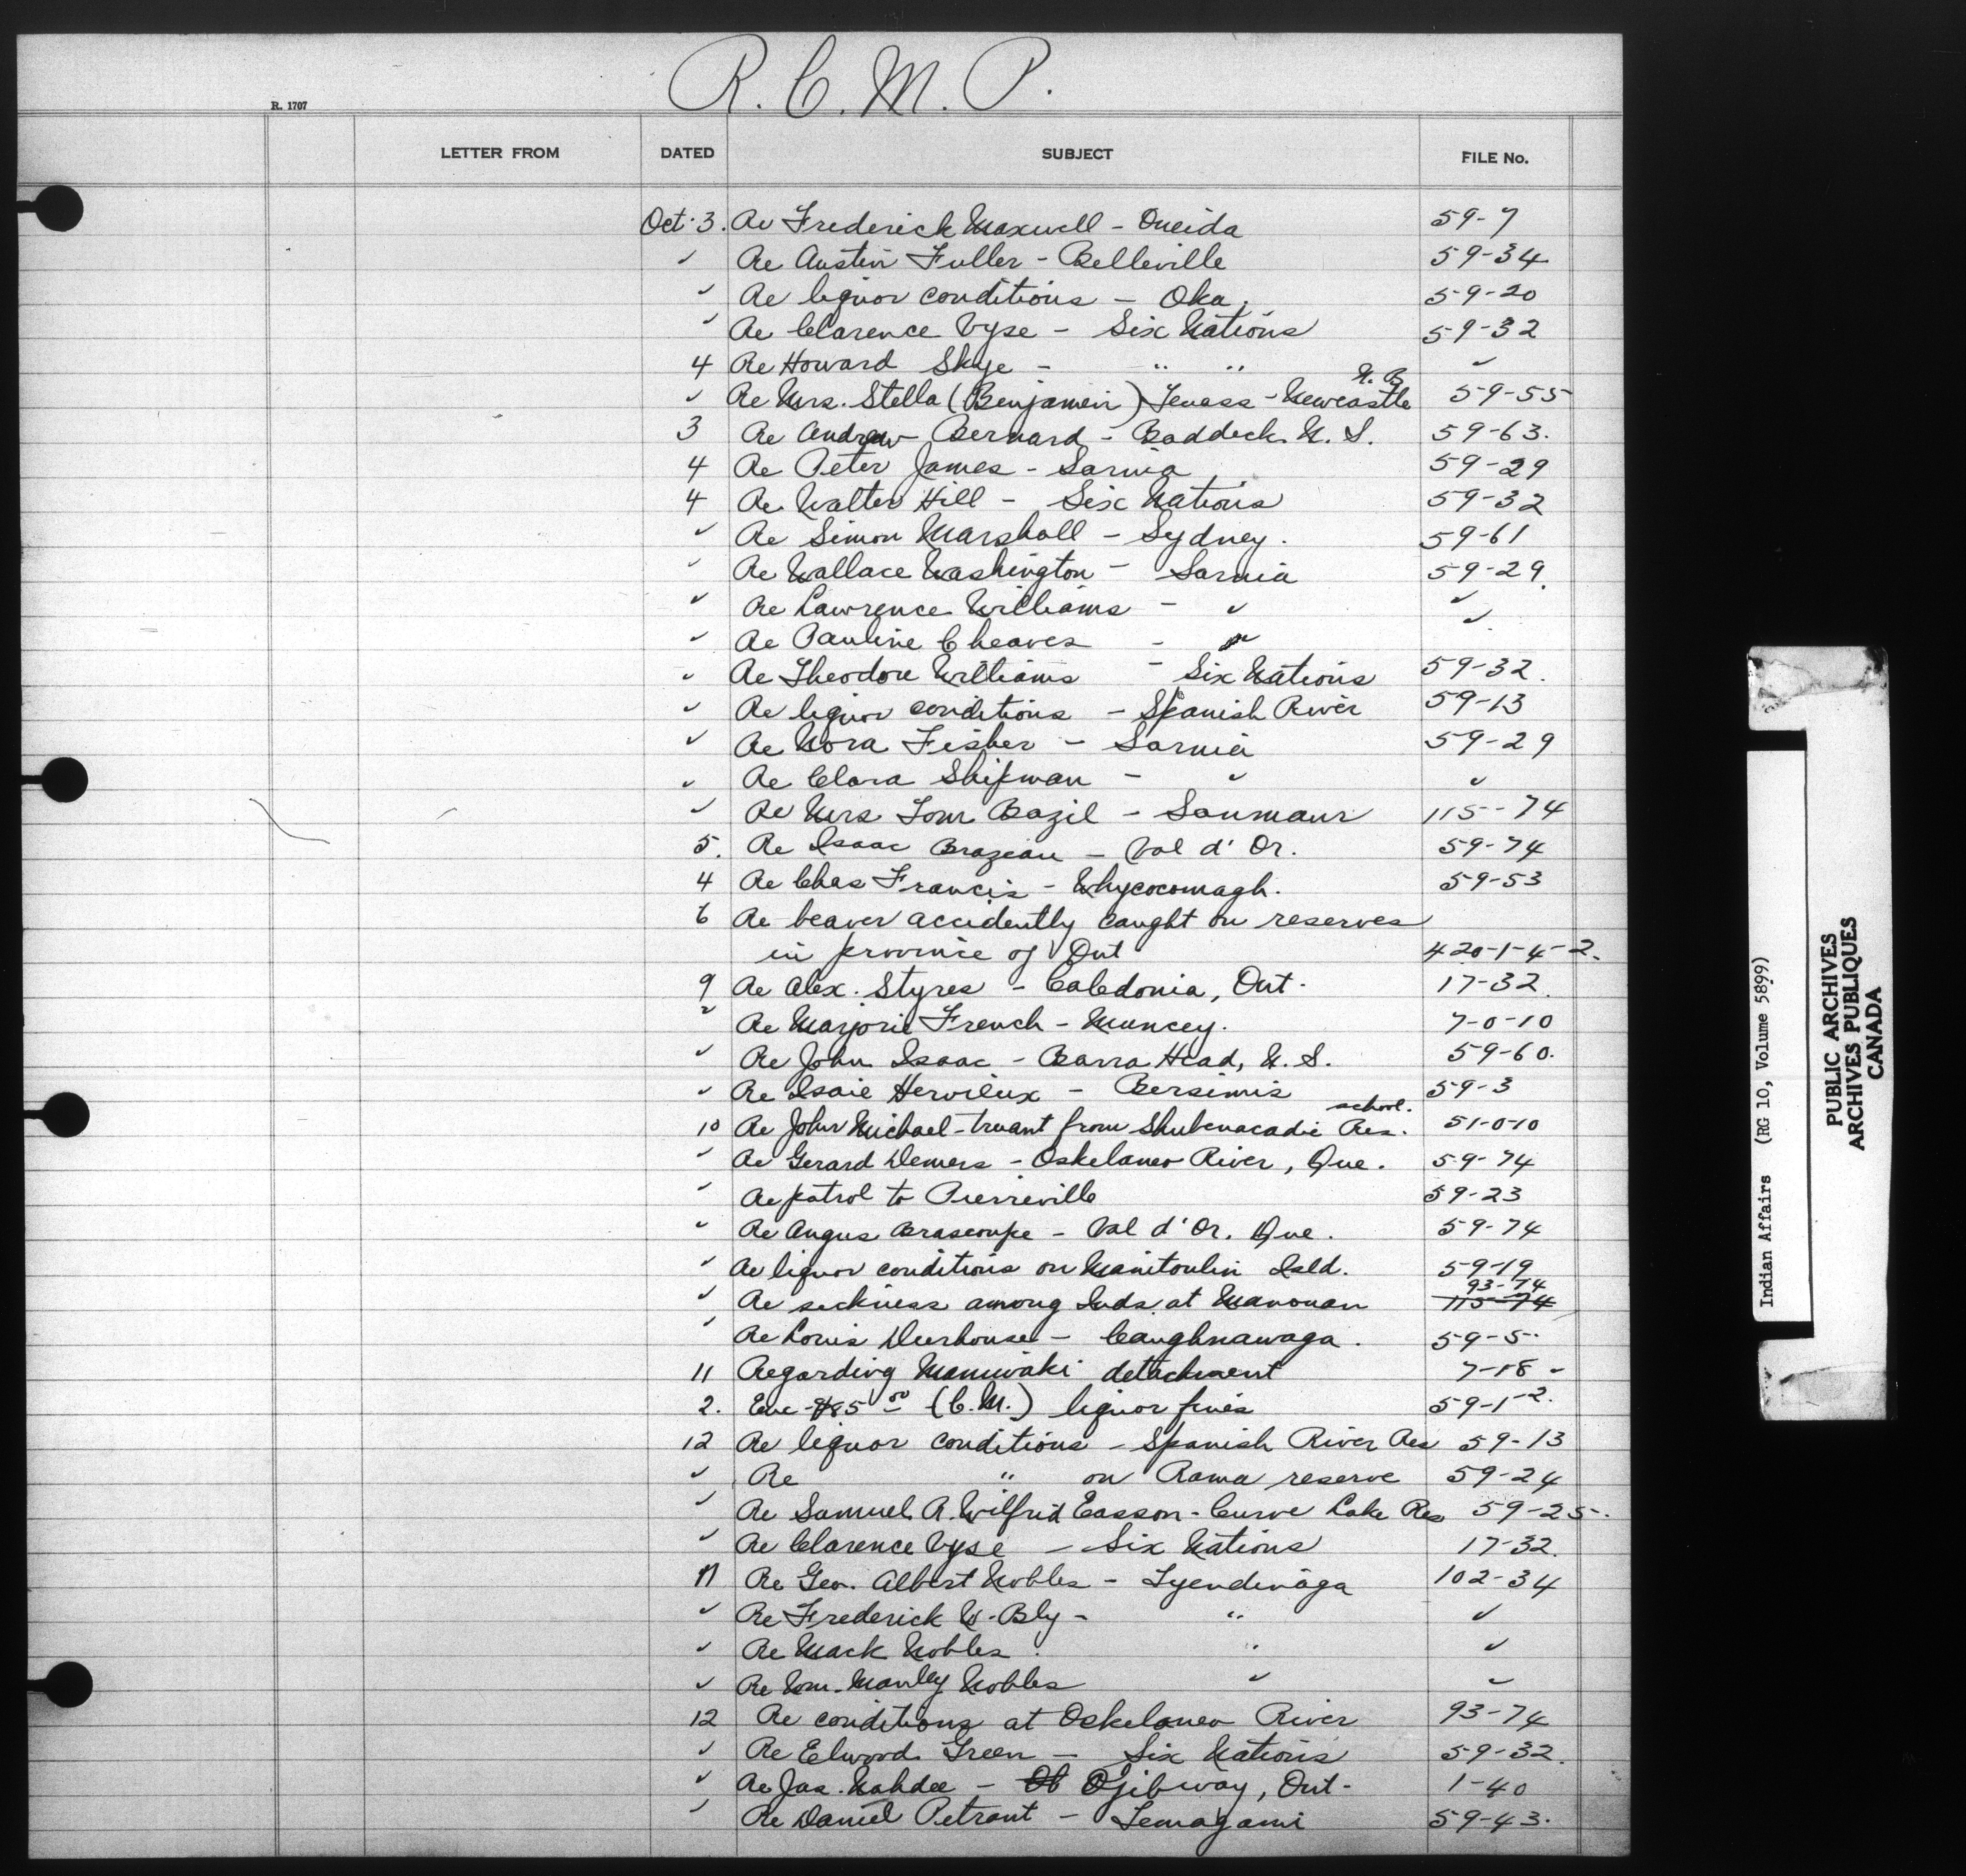 R. C. M. P.
R. 1707
LETTER FROM DATED SUBJECT FILE No.
Oct. 3. Re Frederick Maxwell - Oneida 59-7
✓ Re Austin Fuller - Belleville 59-34
✓ Re liquor conditions - Oka. 59-20
✓ Re Clarence Vyse - Six Nations 59-32
4 Re Howard Skye - " " ✓
N. B.
✓ Re Mrs. Stella (Benjamin) Tenass - Newcastle 59-55
3 Re Andrew Bernard - Baddeck N. S. 59-63.
4 Re Peter James - Sarnia 59-29
4 Re Walter Hill - Six Nations 59-32
✓ Re Simon Marshall - Sydney. 59-61
✓ Re Wallace Washington - Sarnia 59-29.
✓ Re Lawrence Williams - ✓ ✓
✓ Re Pauline Cheaves - " ✓
✓ Re Theodore Williams - Six Nations 59-32.
✓ Re liquor conditions - Spanish River 59-13
✓ Re Nora Fisher - Sarnia 59-29
✓ Re Clara Shipman - ✓ ✓
✓ Re Mrs Tom Bazil - Sanmaur 115-74
5. Re Isaac Brazeau - Val d'Or. 59-74
4 Re Chas Francis - Whycocomagh. 59-53
6 Re beaver accidently caught on reserves
in province of Ont 420-1-4-2.
9 Re Alex. Styres - Caledonia, Ont. 17-32.
✓ Re Marjorie French - Muncey. 7-0-10
✓ Re John Isaac - Barra Head, N. S. 59-60.
✓ Re Isaie Hervieux - Bersimis 59-3
school.
10 Re John Michael - truant from Shubenacadie Res. 51-0-10
✓ Re Gerard Demers - Oskelaneo River, Que. 59-74
✓ Re patrol to Pierreville 59-23
✓ Re Angus Brascoupe - Val d'Or. Que. 59-74
✓ Re liquor conditions on Manitoulin Isld. 59-19
93-74
✓ Re sickness among Inds. at Manouan 115-74
✓ Re Louis Deerhouse - Caughnawaga. 59-5.
11 Regarding Maniwaki detachment 7-18 -
2. Enc $85 00 (C.M.) liquor fines 59-1-2.
12 Re liquor conditions - Spanish River Res 59-13
✓ Re " on Rama reserve 59-24
✓ Re Samuel A. Wilfrid Easson - Curve Lake Res 59-25.
✓ Re Clarence Vyse - Six Nations 17-32.
11 Re Geo. Albert Nobles - Tyendinaga 102-34
✓ Re Frederick W. Bly - " ✓
✓ Re Mack Nobles. " ✓
✓ Re Wm. Manley Nobles ✓ ✓
12 Re conditions at Oskelaneo River 93-74
✓ Re Elwood Green - Six Nations 59-32.
✓ Re Jas. Nahdee - Ob Ojibway, Ont - 1-40
✓ Re Daniel Petrant - Temagami 59-43.
Indian Affairs (RG 10, Volume 5899)
PUBLIC ARCHIVES
ARCHIVES PUBLIQUES
CANADA